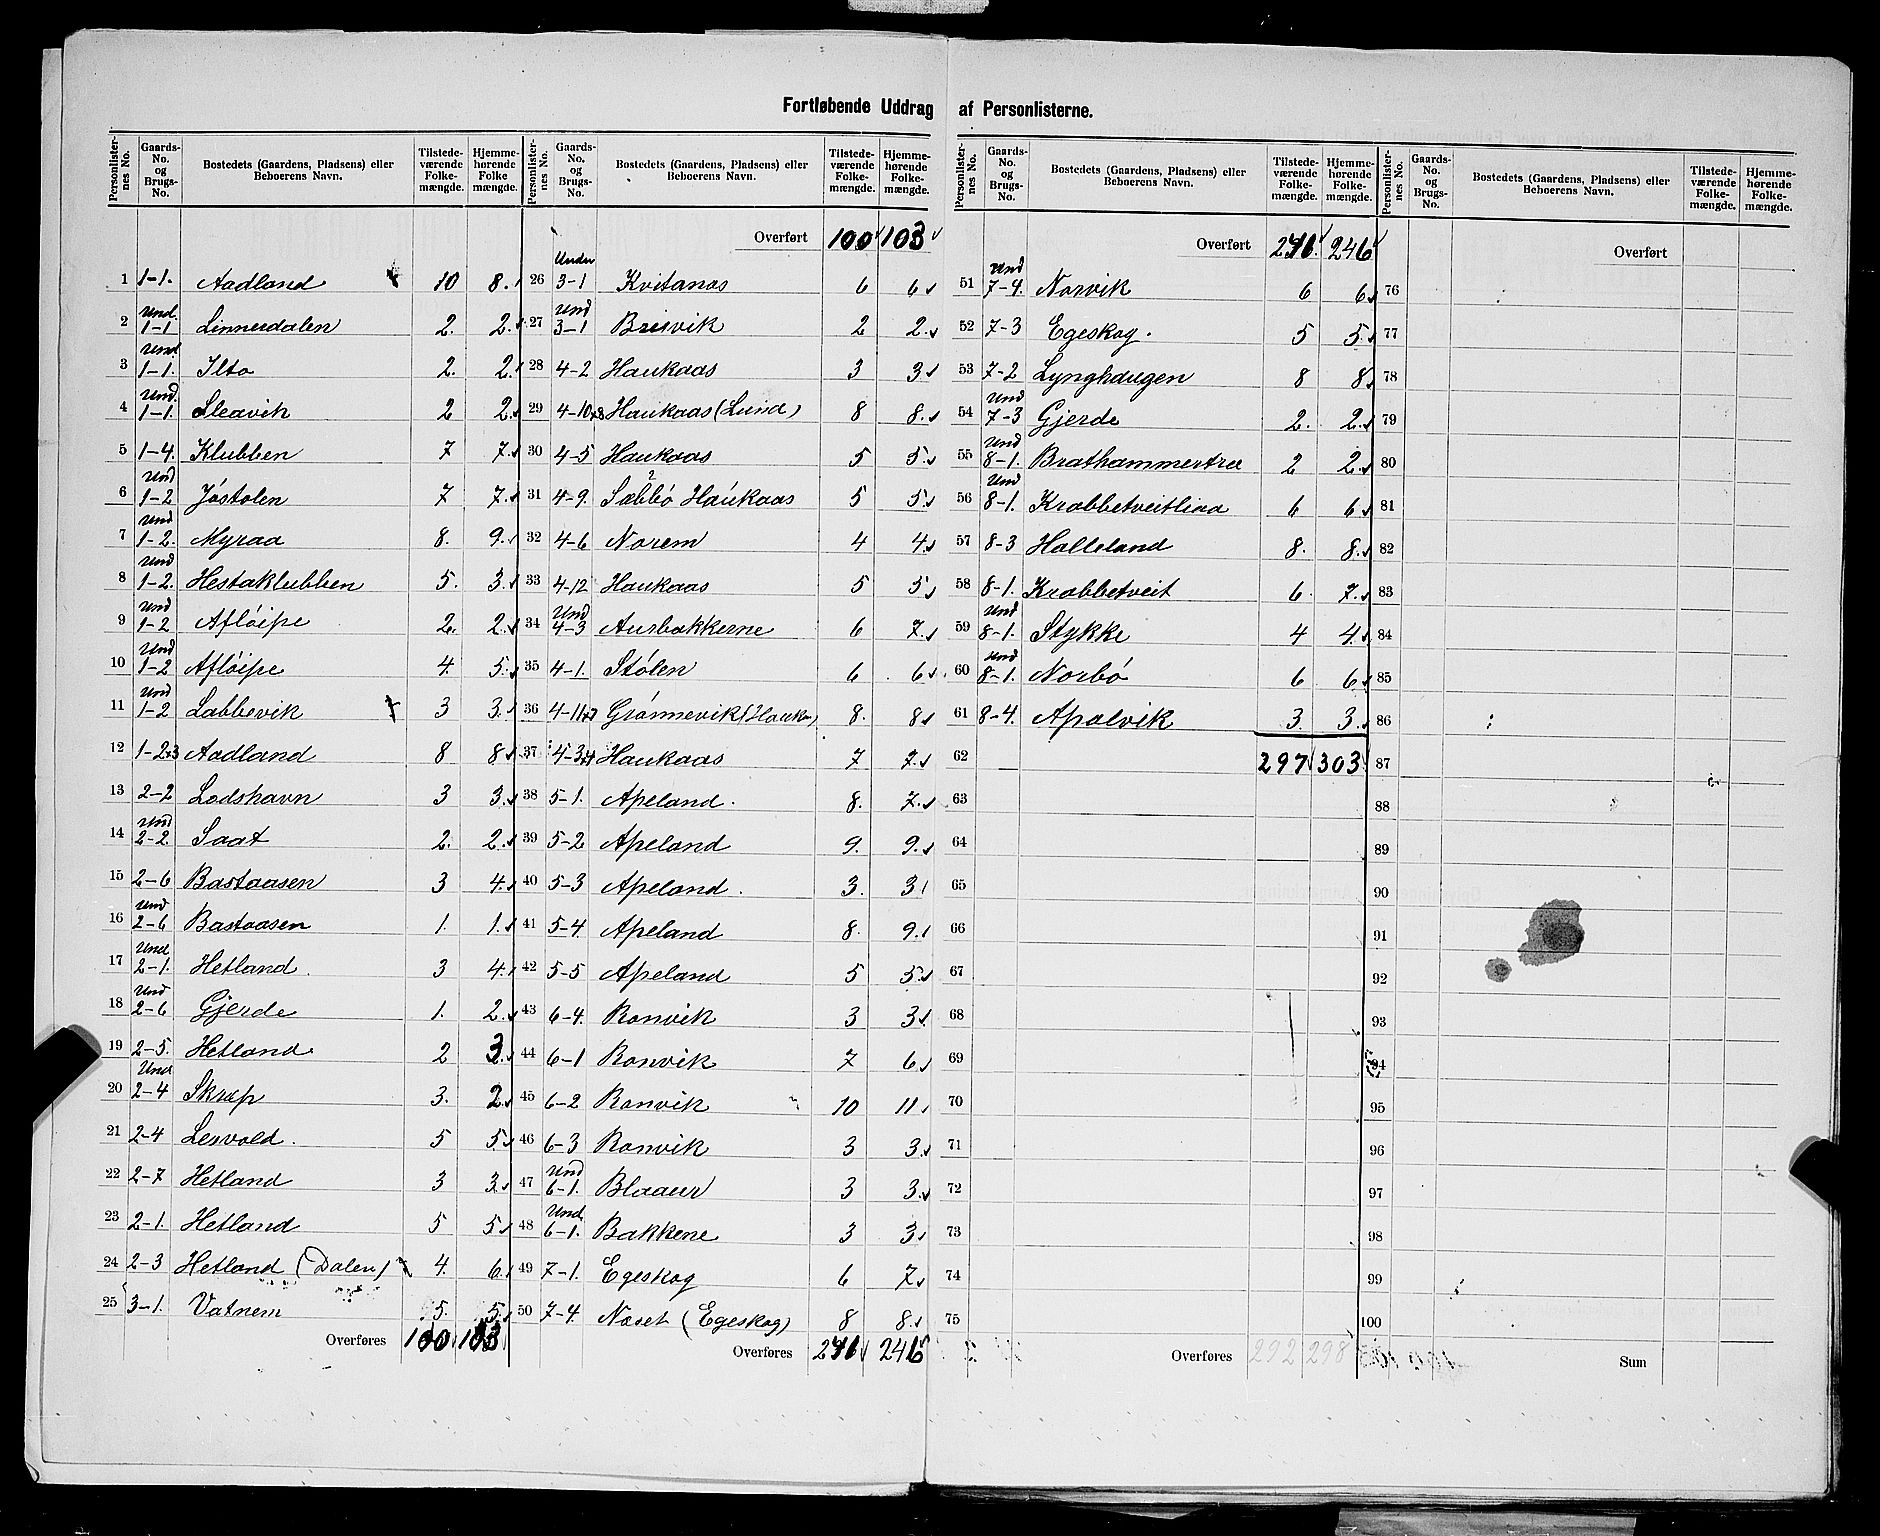 Fortløbende Uddrag af Personlisterne.
Personlisternes No. | Gaards-No. og Brugs-No. | Bostedets (Gaardens, Pladsens) eller Beboerens Navn. | Tilstedeværende Folkemængde. | Hjemmehørende Folkemængde.
1 1-1. Aadland 10 8.
2 Und. 1-1 Linnesdalen 2. 2.
3 Und 1-1. Ilto 2. 2.
4 Und. 1-1. Sleavik 2 2.
5 1-4. Klubben 7 7.
6 Und 1-2 Jóstolen 7 7.
7 Und 1-2. Myraa 8. 9.
8 Und 1-2. Hestaklubben 5. 3.
9 Und 1-2 Aflóipe 2. 2.
10 Und 1-2 Aflóipe 4. 5.
11 Und 1-2 Labbevik 3 3.
12 1-2+3 Aadland 8 8.
13 2-2 Ladshavn 3 3.
14 Und 2-2. Saat 2. 2.
15 2-6 Bastaasen 3 4.
16 Und 2-6 Bastaasen 1. 1.
17 Und 2-1. Hetland. 3 4.
18 Und 2-6 Gjerde 1. 2.
19 2-5. Hetland 2 3.
20 Und 2-4 Skrap 3. 2.
21 2-4 Lesvold. 5 5.
22 2-7 Hetland 3 3.
23 2-1. Hetland 5 5.
24 2-3 Hetland (Dalen) 4. 6.
25 3-1. Vatnem 5. 5.
Overføres 100 103
Personlisternes No. | Gaards-No. og Brugs-No. | Bostedets (Gaardens, Pladsens) eller Beboerens Navn. | Tilstedeværende Folkemængde. | Hjemmehørende Folkemængde.
Overført 100 103
26 Under 3-1 Kvitanas 6 6
27 Und 3-1 Breivik 2 2.
28 4-2 Haukaas 3 3
29 4-10+8 Haukaas (Lund) 8 8.
30 4-5 Haukaas 5 5.
31 4-9. Sæbbó Haukaas 5 5.
32 4-6 Norem 4 4.
33 4-12 Haukaas 5 5.
34 Und 4-3 Aurbakkerne 6 7.
35 4-1. Stólen 6 6.
36 4-11+7 Grónnevik (Hauka) 8. 8
37 4-3+4 Haukaas 7 7.
38 5-1. Apeland. 8. 7.
39 5-2 Apeland 9. 9.
40 5-3 Apeland. 3. 3
41 5-4 Apeland 8. 9.
42 5-5 Apeland 5 5.
43 6-4. Ranvik 3 3.
44 6-1 Ranvik 7 6.
45 6-2 Ranvik 10 11.
46 6-3 Ranvik 3 3.
47 Und 6-1. Blaaur 3 3.
48 Und 6-1. Bakkene 3 3.
49 7-1. Egeskog 6 7.
50 7-4. Næset (Egeskog) 8 8.
Overføres 241 246
Personlisternes No. | Gaards-No. og Brugs-No. | Bostedets (Gaardens, Pladsens) eller Beboerens Navn. | Tilstedeværende Folkemængde. | Hjemmehørende Folkemængde.
Overført 241 246
51 Und 7-4. Norvik 6 6.
52 7-3 Egeskog. 5 5.
53 7-2 Lynghaugen 8 8.
54 Und 7-3 Gjerde 2. 2.
55 Und 8-1. Brathammertræ 2 2.
56 Und 8-1. Krabbetveitliaa 6 6
57 8-3 Halleland 8. 8.
58 8-1. Krabbetveit 6. 7.
59 Und 8-1. Stykke 4 4.
60 Und 8-1. Norbó 6 6.
61 8-4. Apalvik 3. 3.
62 297 303
63
64
65
66
67
68
69
70
71
72
73
74
75
Overføres 292 298
Personlisternes No. | Gaards-No. og Brugs-No. | Bostedets (Gaardens, Pladsens) eller Beboerens Navn. | Tilstedeværende Folkemængde. | Hjemmehørende Folkemængde.
Overført
76
77
78
79
80
81
82
83
84
85
86
87
88
89
90
91
92
93
94
95
96
97
98
99
100
Sum